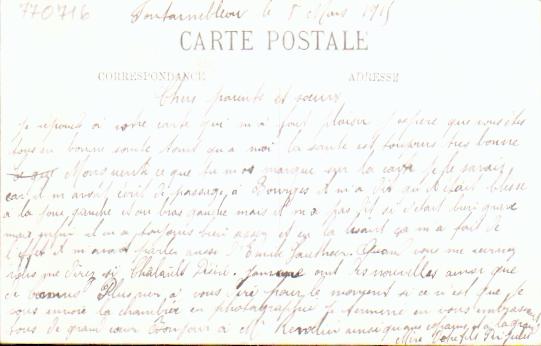 770716
Fontainebleau le 8 Mars 1915
CARTE POSTALE
CORRESPONDANCE ADRESSE
Chers parents et sœurs
Je réponds à votre carte qui m'a fait plaisir J'espère que vous êtes
tous en bonne santé quant à moi la santé est toujours très bonne
ce que tu me marque sur la carte je le savais
car il m'avait écrit de passage à Bourges il m'a dit qu'il était blessé
a la joue gauche et au bras gauche mais il m'a pas dit si c'était bien grave
mais enfin il m'a toujours bien assez et en la lisant ça m'a fait de
l'effet il m'avait aussi d'Emile Gauthier. Quand vous me
vous me direz si Désiré. ont des nouvelles ainsi que
Plus rien à vous dire pour le moment si ce n'est que je
vous envoie la chambrée en photographie Je termine en vous embrassant
tous de grand cœur Bonjour à Mr ainsi qu'aux copains et à la grand
Mère Votre fils